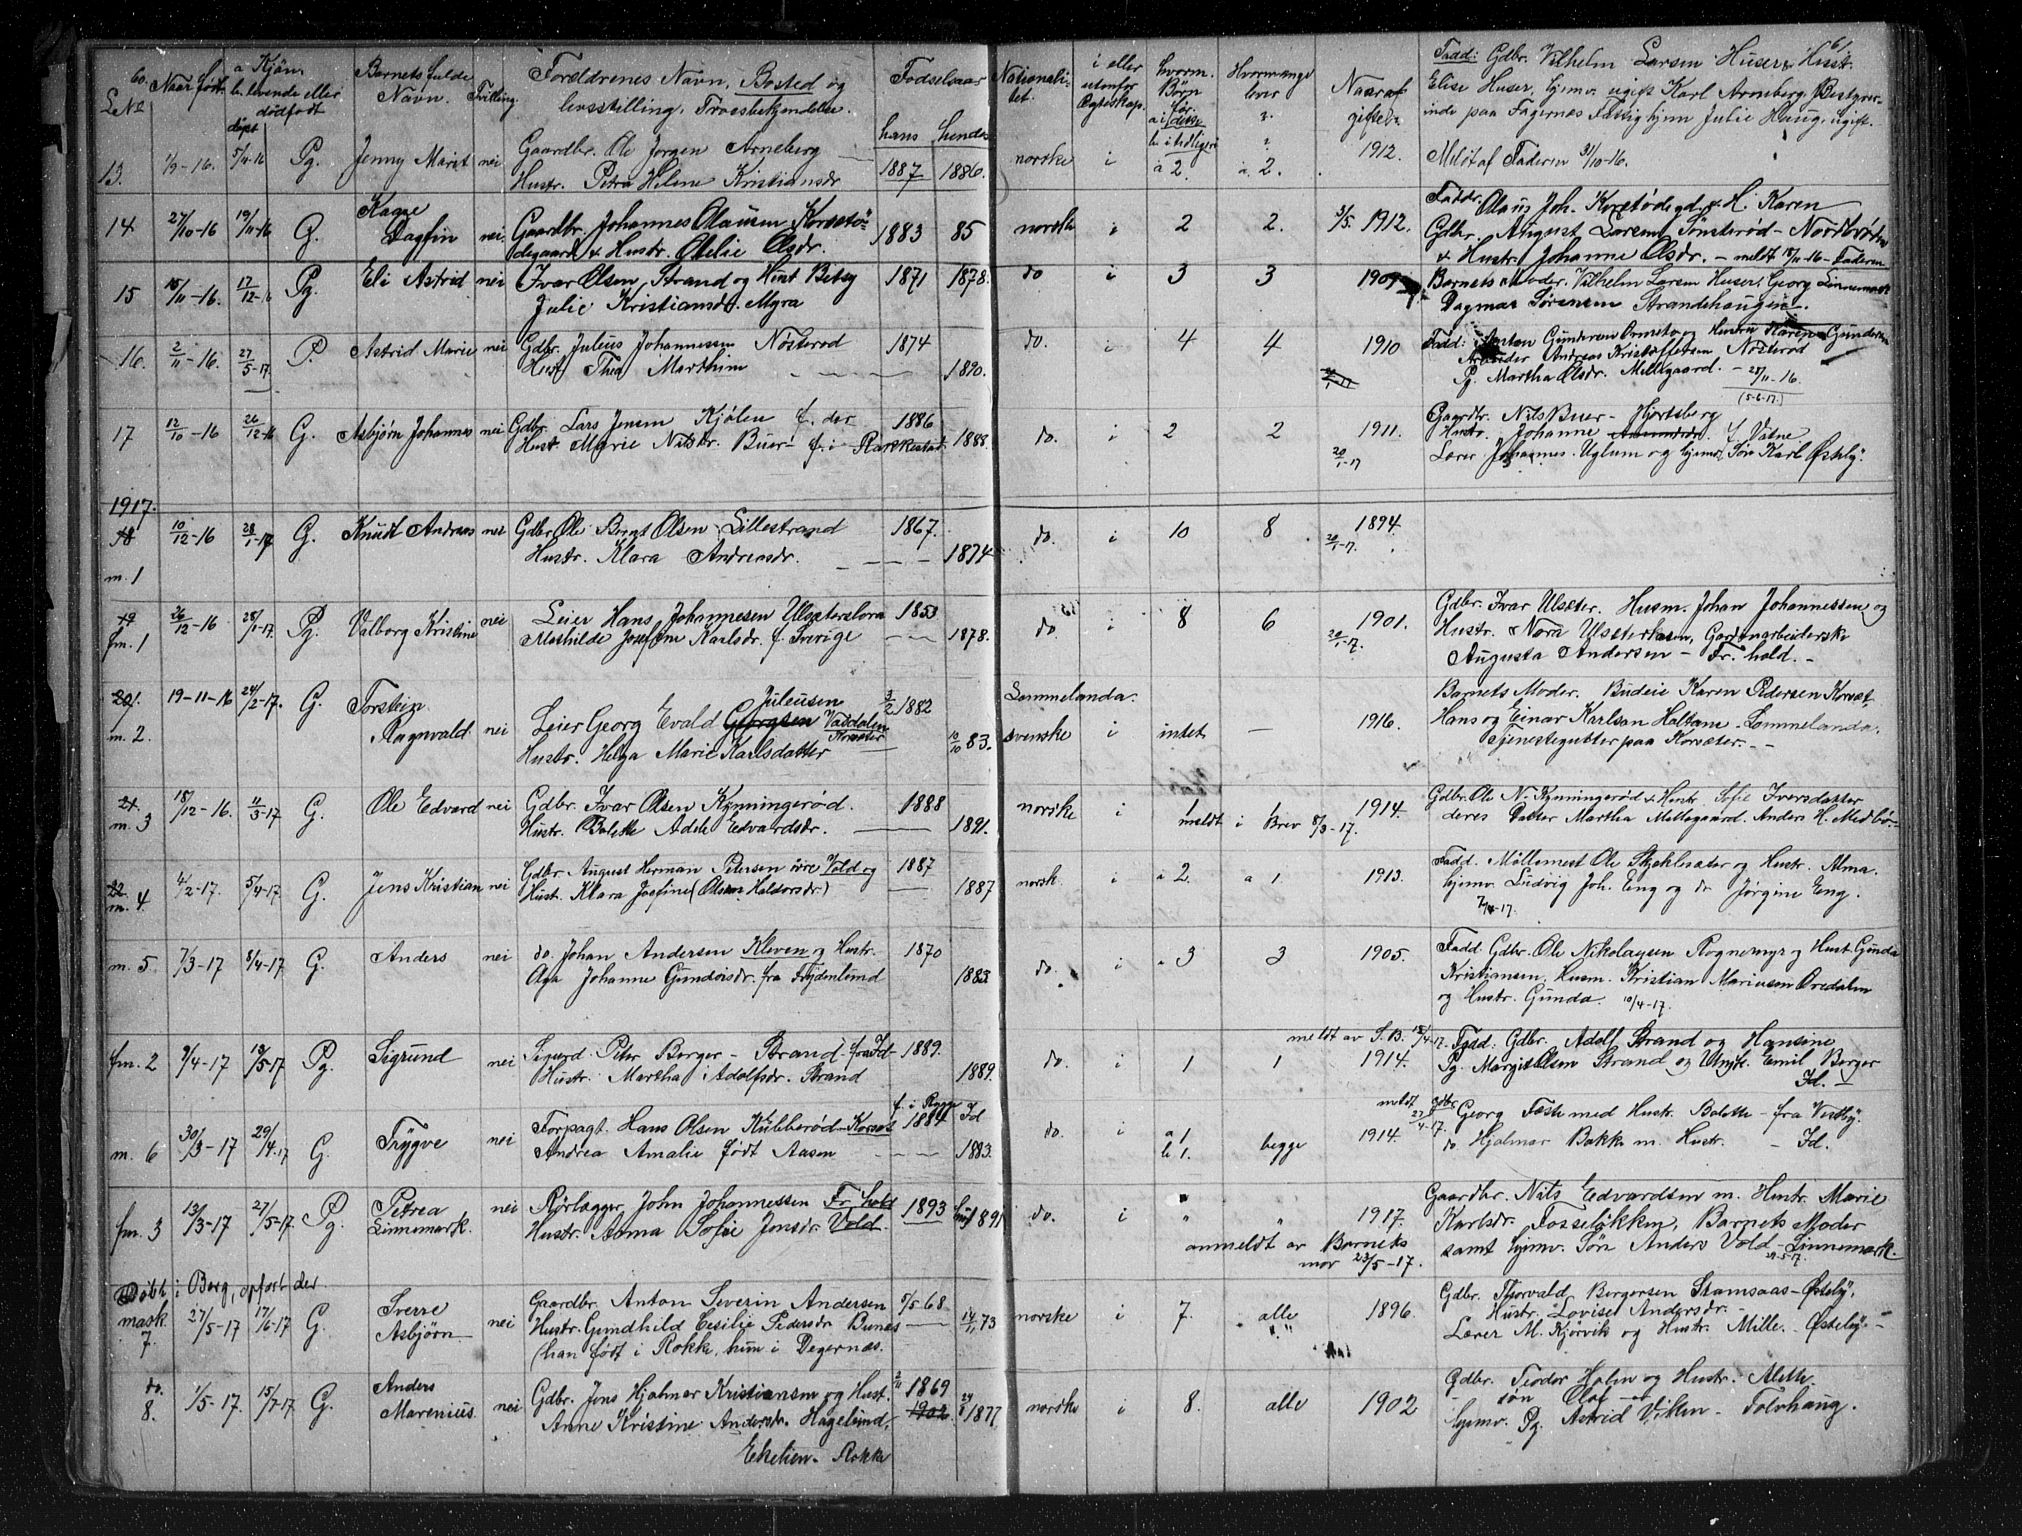 60.
LN Naar født a Kjøn Barnets fulde Tvilling. Forældrenes Navn, Bosted og Fødselsaar Nationali- i eller hvorm. Hvormange Naar 61
b. levende eller Navn. levsstilling, Troesbekjendelse. tet. utenfor Børn lever gifte
dødfødt hans hendes Ægteskap. a i dette
døpt b i tidligere
Fadd: Gdbr. Vilhelm Larsen Huser & Hustr.
Elise Huser, hjemv. ugift Karl Arneberg. Bestyrer-
inde paa Fagernæs Fattighjem Julie Haug, ugift.
13. 1/9-16. 5/11-16 Pg. Jenny Marit nei Gaardbr. Ole Jørgen Arneberg 1887 1886. norske i a 2. a. 2. 1912. Meldt af Faderen 31/10-16.
Hustr. Petra Helene Kristiansdr
14 27/10-16 19/11-16 G. Kaare nei Gaardbr. Johannes Olausen Korsetø- 1883 85 norske i 2 2. 3/5. 1912. Faddr. Olaus Joh. Korsetødegd. & H. Karen
Dagfin degaard & Hustr. Otelie Olsdr. Gdbr. August Larsen Tønsterød - Nordbrøten
& Hustr. Johanne Olsdr. - meldt 18/11-16 - Faderen
15 15/11-16. 17/12-16 Pg. Eli Astrid nei Ivar Olsen, Strand og Hust Betsy 1871 1878. do i 3 3 1909 Barnets Moder. Vilhelm Larsen Huser, Georg Linnemark
Julie Kristiansdr. Myra Dagmar Sørensen Strandehaugen.
16. 2/11-16. 27/5-17. P. Astrid Marie nei Gdbr. Julius Johannessen Nøsterød 1874 do. i 4 4 1910 Fadd: Anton Gundersen Ormeto og Hustru Karen Gundersen
Hust Thea Marthin 1890. Arbeider Andreas Kristoffersen Nøsterød
Pg. Martha Olsdr. Mellegaard. - 25/11-16.
(5-6-17.)
17 12/10-16 26/12-16 G. Asbjørn Johannes nei Gdbr. Lars Jensen Kjølen f. der 1886 do. i 2 2 1911. Gaardbr. Nils Buer - Hjortsberg
Hust Marie Nilsdr. Buer f. i Rakkestad 1888. Hustr. Johanne f. Vatne
20/1-17 Lærer Johannes Uglum og hjemv. Søn Karl Østeby.
1917.
18 10/12-16 28/1-17 G. Knudt Andreas nei Gdbr. Ole Bernt Olsen Lillestrand 1867. do. i 10 8 1894.
m. 1 Hustr. Klara Andreasdr. 1874 20/1-17.
19 26/12-16 28/1-17. Pg. Valborg Kristine nei Leier Hans Johannesen Ulsæterslora 1853 do. i 8 6 1901. Gdbr. Ivar Ulsæter. Husm. Johan Johannessen og
fm. 1 Mathilde Josefine Karlsdr. f. Sverige 1878. 20/1-17. Hustr. Nora Ulsæterhaen, Gardenarbeiderske
Augusta Andersen - Fr. hald. -
20. 19-11-16 24/2-17. G. Torstein Juleusen 3/2 1882 Sommelanda. Barnets Moder. Budeie Karen Pedersen Korsæt
m. 2. Ragnvald nei Leier Georg Evald Georgsen Vasdalen svenske i intet - 1916. Hans og Einar Karlsan Haltane - Sommelanda.
Hustr. Helga Marie Karlsdatter Korsæter 10/10 83. Tjenestegutter paa Korsæter. -
21. 18/12-16. 11/3-17 G. Ole Edvard nei Gdbr. Ivar Olsen Kynningerød. 1888 norske i 1 1 1914. Gdbr. Ole N. Kynningerød & Hustr Sofie Iversdatter
m. 3 Hustr. Bolette Adele Edvardsdr. 1891. meldt i Brev 8/3-17. deres Datter Martha Mellegaard. Anders H. Medbø-
22. 4/2-17. 5/4-17. G. Jens Kristian nei Gdbr August Herman Petersen øvre Vold og 1887 norsk. i a 2. a 1. 1913. Fadd. Møllemest Ole Skjeklesæter og Hustr. Alma.
m. 4 Hust. Klara Josefine (Olsen Haldorsdr) 1887 hjemv. Ludvig Joh. Eng og do Jørgine Eng.
7/4-17.
m. 5 7/3-17 8/4-17 G. Anders nei do. Johan Andersen Kleven og Hustr. 1870 do. i 3 3 1905. Fadd. Gdbr. Ole Nikolaysen Rognemyr og Hust Gunda
Olga Johanne Gundersdr. fra Frydenlund 1883 Kristiansen, Husm. Kristian Mariusen Øredalen
og Hustr. Gunda. 10/4-17.
meldt av S.B. 12/4-17.
fm. 2 9/4-17 13/5-17 Pg. Sigrund nei Sigurd Peter Berger - Strand fra Id 1889. do. i 1 1 1914. Fadd: Gdbr. Adolf Strand og Hansine
Hustr. Martha Adolfsdr. Strand 1889. Pg. Margit Olsen Strand og Ungk. Emil Berger
Id.
f. i Rygge
m. 6 30/3-17 29/4-17 G. Trygve nei Forpagt. Hans Olsen Kubberød - Korsæt 1884 Id do. i a 1 begge 1914. meldt 27/4-17. gdbr Georg Fæste med Hustr. Bolette - fra Vestby.
Andrea Amalie født Aasen 1883. b 1. do. Hjalmar Bakke m. Hustr. - Id.
fm. 3 13/3-17 27/5-17. Pg. Petrea nei Rørlægger John Johannessen Fr. hald 1893 1891 do. i " " 1917. Gaardbr. Nils Edvardsen m. Hustr. Marie
Linnemark. Hustr. Anna Sofie Jensdr. Vold. anmeldt av Barnets Karlsdr. Fosseløkken, Barnets Moder
mor 23/5-17. samt hjemv. Søn Anders Vold - Linnemark.
27-5-17.
Døbt i Berg, opført der
mask. 27/5-17 17/6-17 G. Sverre nei Gaardbr. Anton Severin Andersen 5/5 68 norske i 7. alle 1896. Gdbr. Thorvald Borgersen Stamsaas - Østeby.
7. Asbjørn Hustr. Gundhild Cesilie Pedersdr Bunes 14/11 73 Hustr. Lovise Andersdr.
(han født i Rokke, hun i Degernæs. Lærer M. Kjørvik og Hustr. Mille. - Østeby. -
do. 8. 1/5-17. 15/7-17 G. Anders nei Gdbr. Jens Hjalmar Kristiansen og Hust. 1869 norske i 8. alle 1902 Gdbr. Teodor Holm og Hustr. Alette
Marenius Anne Kristine Andersdr. Hagelund, 1902 1877 søn Olaf
Ekelien - Rokke hjemv. Pg. Astrid Viken - Tolvhaug.